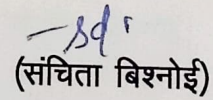 -sd'
(संचिता बिश्नोई)